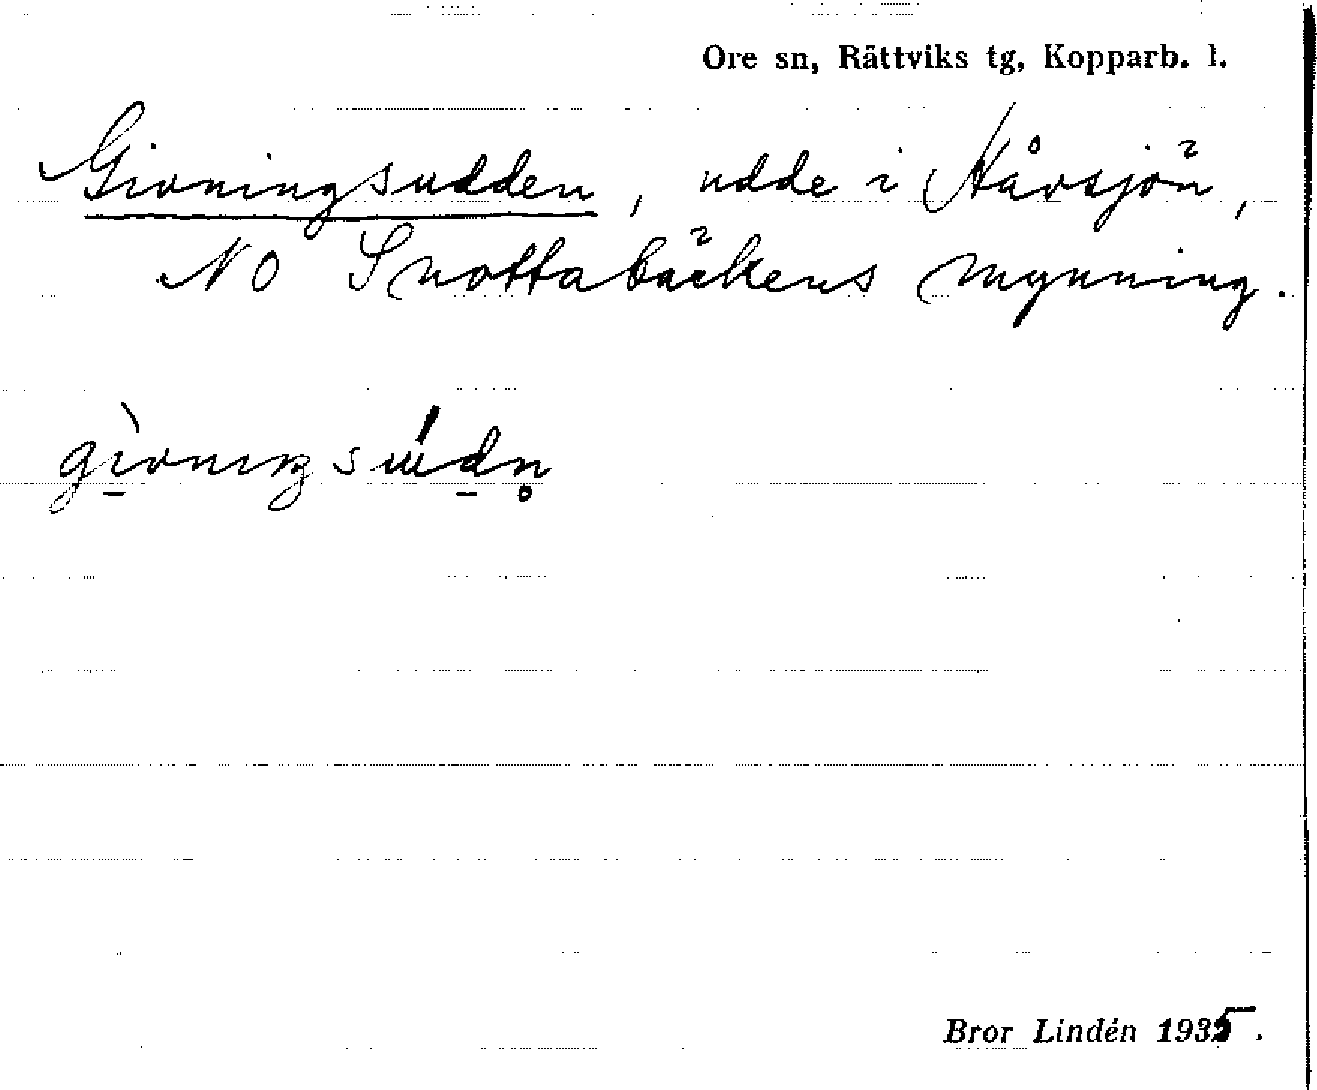 Ore sn, Rättviks tg, Kopparb. l.
Givningsudden, udde i Håvsjön,
NO Snottabäckens mynning.
gìvnıŋsúdn̥
Bror Lindén 1935.